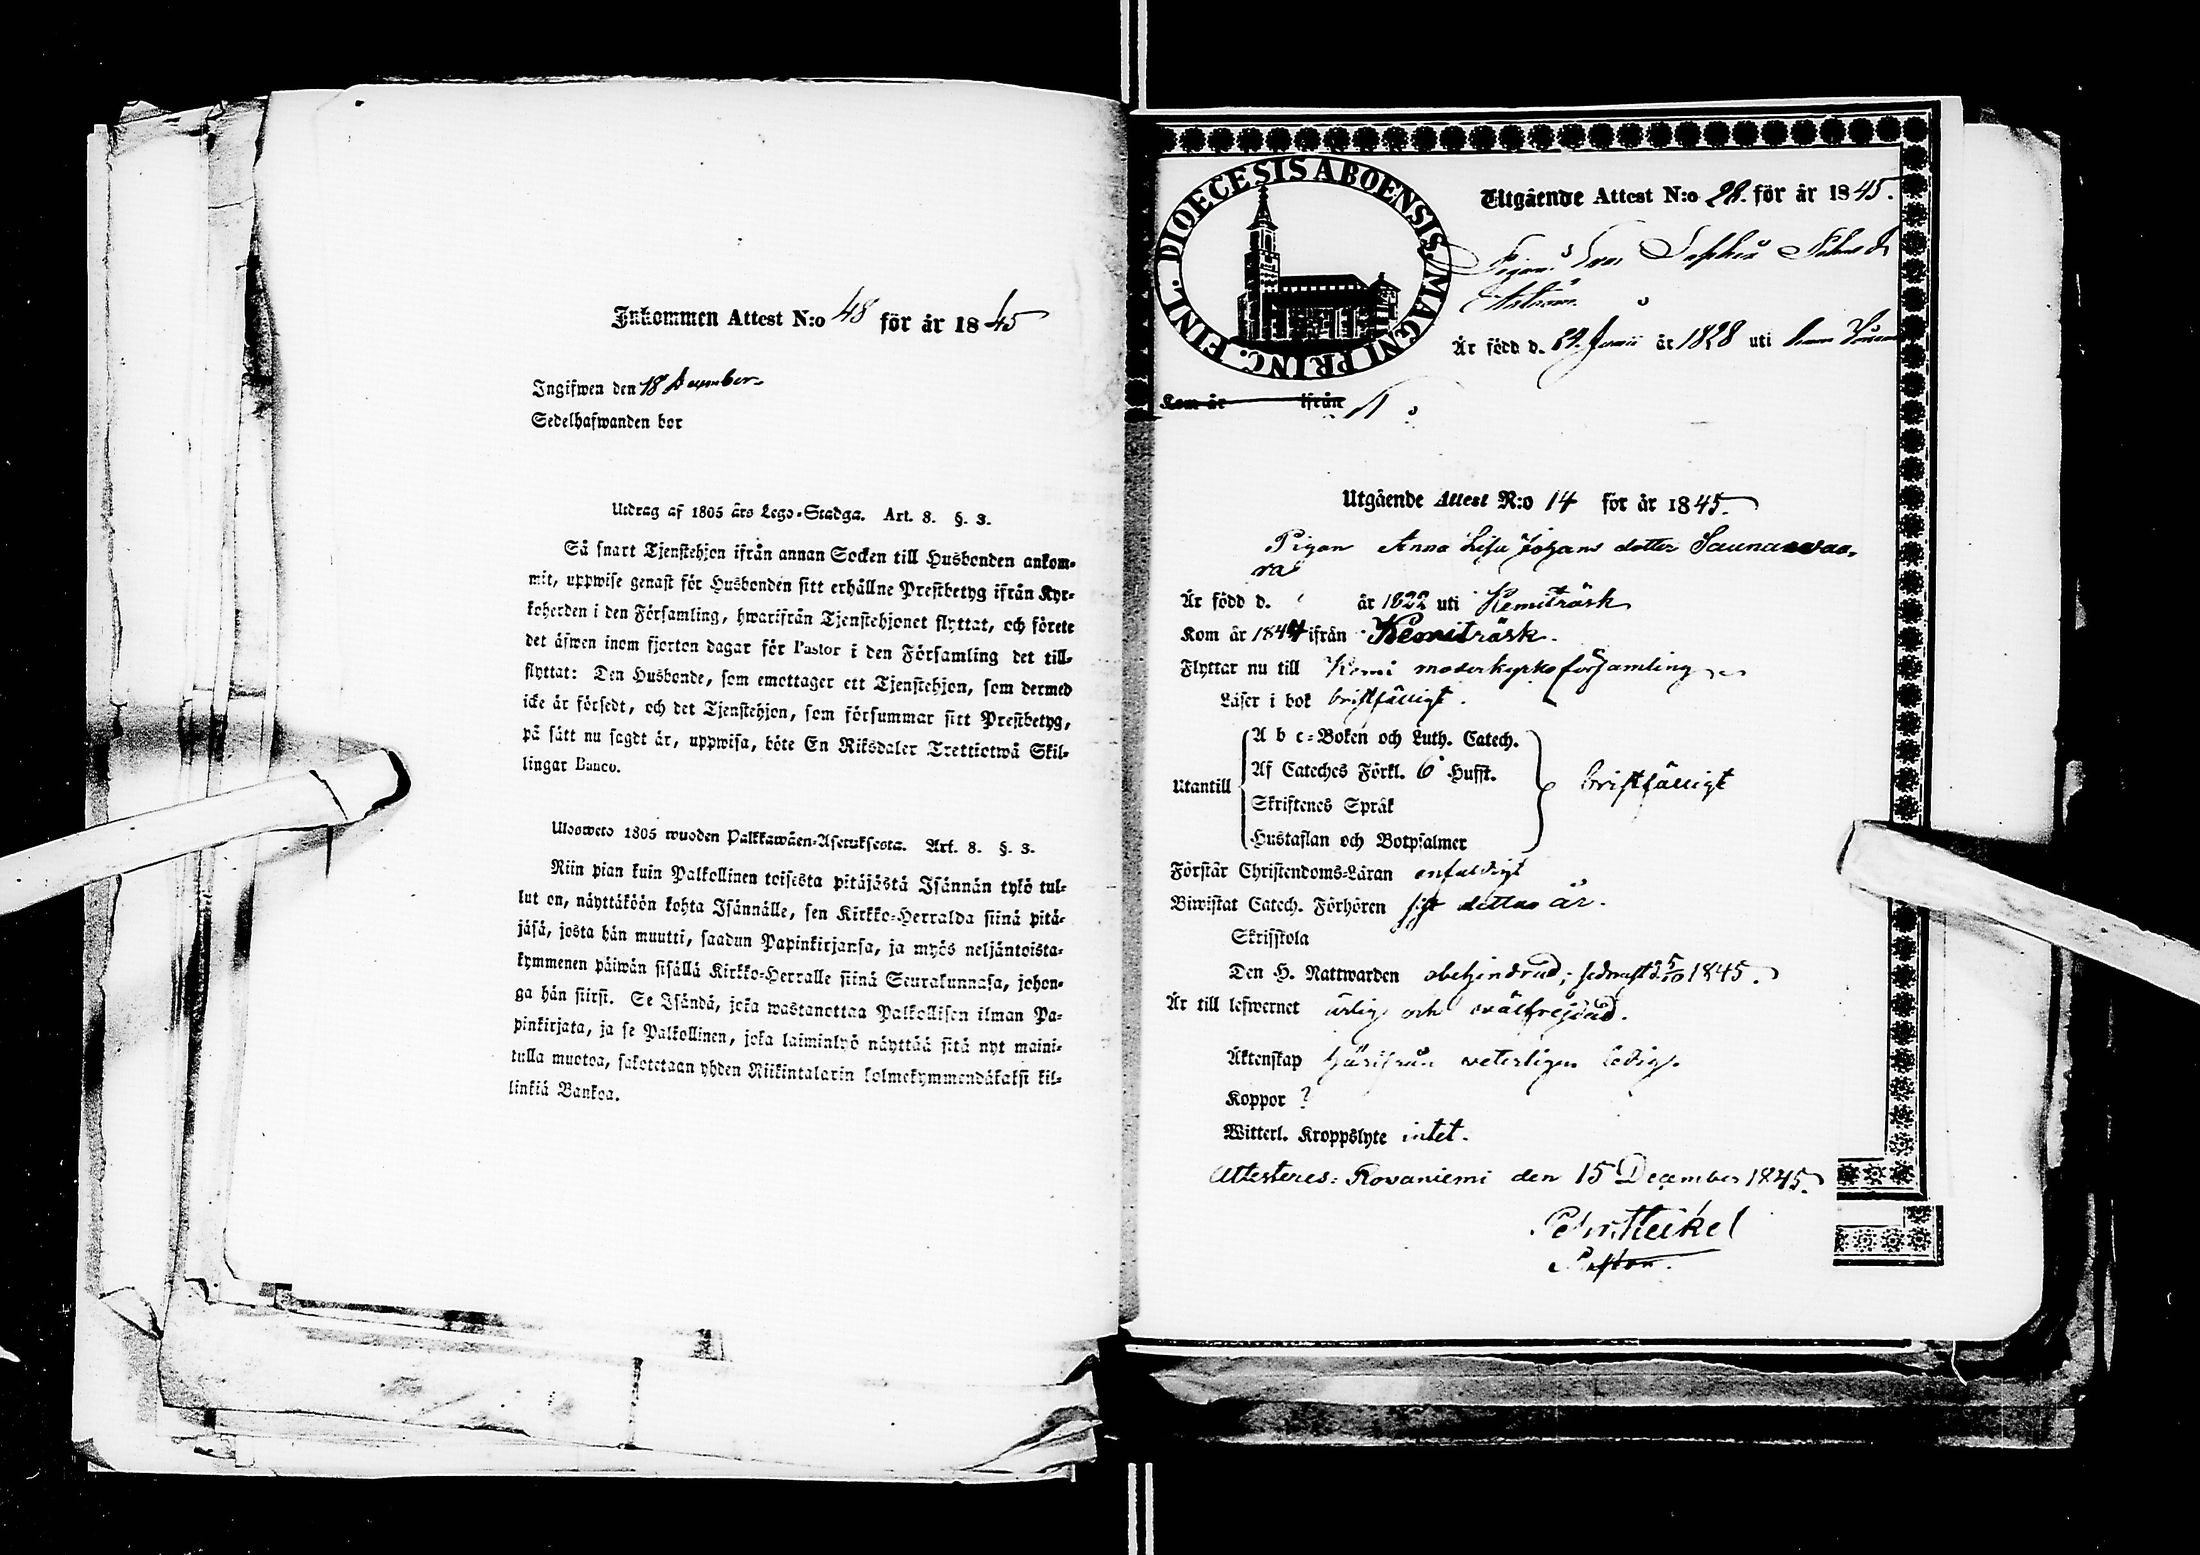 Inkommen Attest N:o 48 för år 1845
Ingifwen den 18 December
Sedelhafwanden bor
Utdrag af 1805 års Lego-Stadga. Art. 8. §. 3.
Så snart Tjenstehjon ifrån annan Socken till Husbonden ankom-
mit, uppwise genast för Husbonden sitt erhållne Prestbetyg ifrån Kyr-
koherden i den Församling, hwarifrån Tjenstehjonet flyttat, och förete
det äfwen inom fjorton dagar för Pastor i den Församling det till-
flyttat: Den Husbonde, som emottager ett Tjenstehjon, som dermed
icke är försedt, och det Tjenstehjon, som försummar sitt Prestbetyg,
på sätt nu sagdt är, uppwisa, böte En Riksdaler Trettiotwå Skil-
lingar Banco.
Ulosweto 1805 wuoden Palkkawäen-Asetuksesta. Art. 8. §. 3.
Niin pian kuin Palkollinen toisesta pitäjästä Isännän tykö tul-
lut on, näyttäköön kohta Isännälle, sen Kirkko-Herralda siinä pitä-
jäsä, josta hän muutti, saadun Papinkirjansa, ja myös neljäntoista-
kymmenen päiwän sisällä Kirkko-Herralle siinä Seurakunnasa, johon-
ga hän siirsi. Se Isändä, joka wastanottaa Palkollisen ilman Pa-
pinkirjata, ja se Palkollinen, joka laiminlyö näyttää sitä nyt maini-
tulla muotoa, sakotetaan yhden Riikintalarin kolmekymmendäkaksi kil-
linkiä Bankoa.
FINL. DIOECESIS ABOENSIS, MAGNI PRINC.
Utgående Attest N:o 28. för år 1845.
Pigan Eva Sophia
Är född d. 24. Junii år 1828 uti
Kom år ifrån
Utgående Attest N:o 14 för år 1845.
Pigan Anna Lisa Johans dotter Saunawaa-
ra
Är född d. år 1822 uti Kemiträsk
Kom år 1844 ifrån Kemiträsk.
Flyttar nu till Kemi moderkyrkoförsamling
Läser i bok bristfälligt.
Utantill
A b c-Boken och Luth. Catech.
Af Cateches Förkl. 6 Hufst.
Skriftenes Språk
Hustaflan och Botpsalmer
bristfälligt
Förstår Christendoms-Läran enfaldigt
Biwistat Catech. Förhören sist dettas år.
Skriftskola
Den H. Nattwarden obehindrad; sednast 25/10 1845.
Är till lefwernet ärlig och wälfrejdad.
Äktenskap härifrån veterligen ledig.
Koppor ?
Witterl. Kroppslyte intet.
Attesteres: Rovaniemi den 15 December 1845.
Petr. Heikel
Pastor.